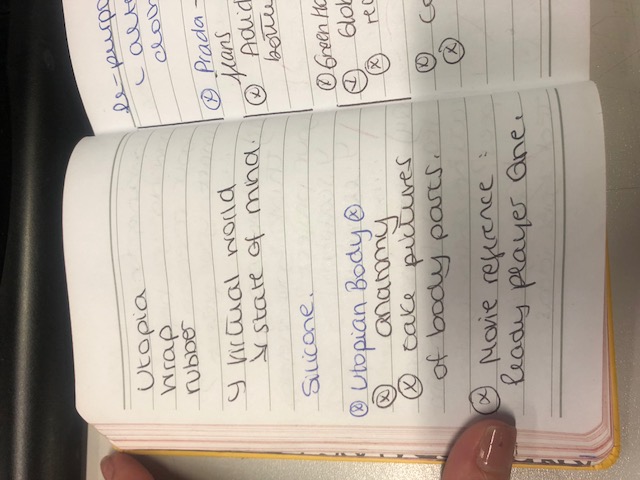 Utopia
wrap
rubber
y virtual world
y state of mind.
Silicone.
ⓧ Utopian Body ⓧ
ⓧ anatomy
ⓧ take pictures
of body parts.
ⓧ Movie reference:
Ready player One.
ⓧ Prada -
jeans
ⓧ Adid
ⓧ Green Ho
Glob
ⓧ re
ⓧ Co
ⓧ